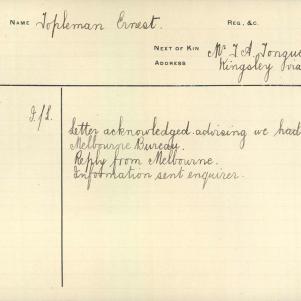 NAME Topleman Ernest. REG. &C.
NEXT OF KIN Mr T. A. Tongue
ADDRESS Kingsley
I/L. Letter acknowledged advising we had
Melbourne Bureau.
Reply from Melbourne.
Information sent enquirer.